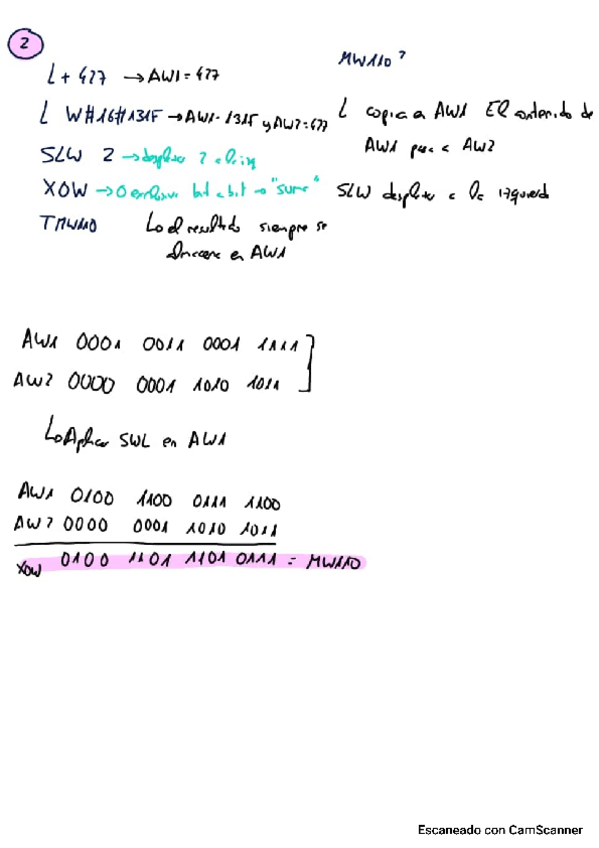 2
MW110 ?
L + 427 → AW1 = 427
L W#16#131F → AW1 = 131F y AW2 = 427
L copia a AW1 El contenido de
AW1 pasa a AW2
SLW 2 → desplaza 2 a la izq
XOW → O exclusivo bit a bit → "suma"
SLW desplaza a la izquierda
T MW110
↳ el resultado siempre se
almacena en AW1
AW1 0001 0011 0001 1111
AW2 0000 0001 1010 1011
↳ Aplicar SWL en AW1
AW1 0100 1100 0111 1100
AW2 0000 0001 1010 1011
XOW 0100 1101 1101 0111 = MW110
Escaneado con CamScanner